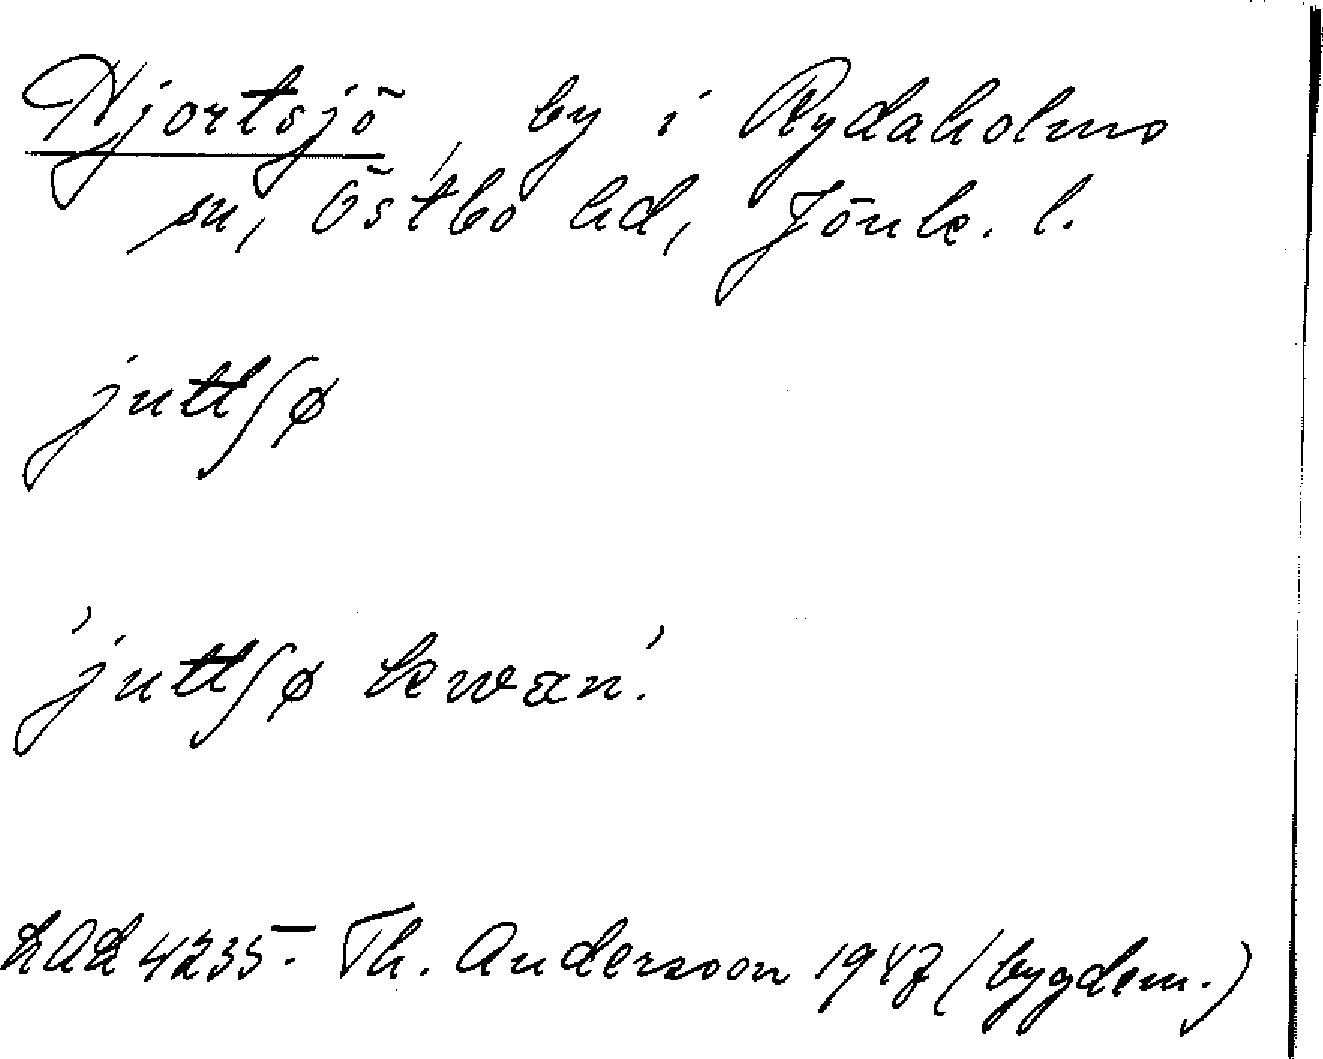 Hjortsjö, by i Rydaholms
sn, Östbo hd, Jönk. l.
juttʃø
'juttʃø kwæn'.
LAL 4235. Th. Andersson 1947 (bygdem.)